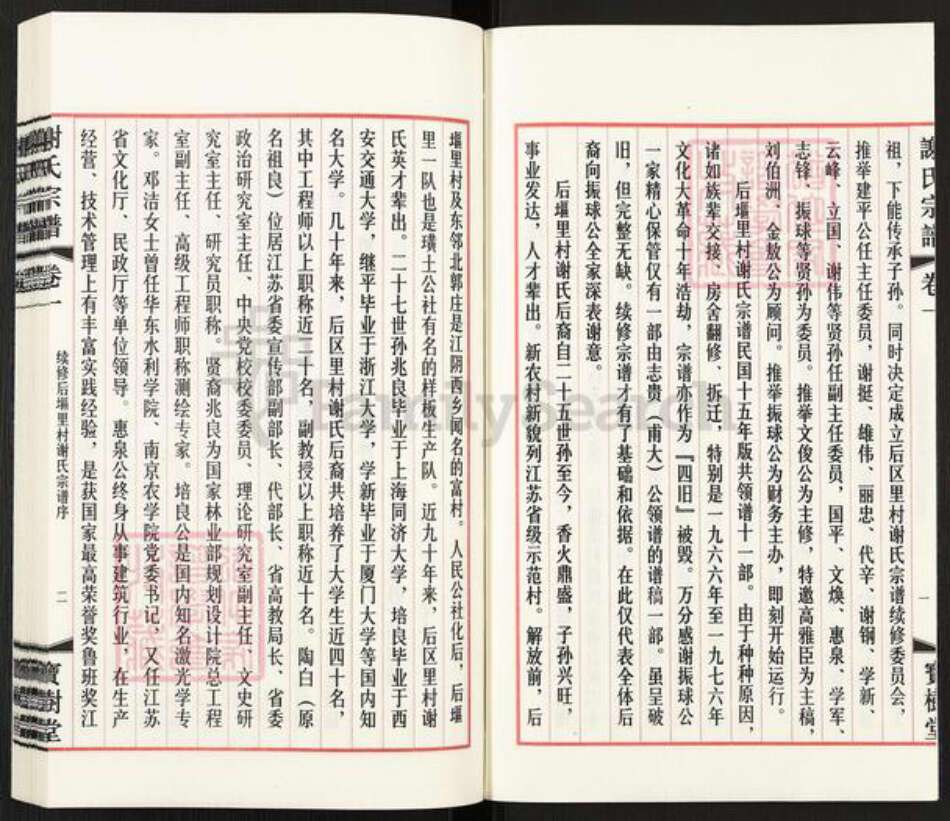 謝氏宗譜 卷一
一
寶樹堂
祖，下能传承子孙。同时决定成立后区里村谢氏宗谱续修委员会，
推举建平公任主任委员，谢挺、雄伟、丽忠、代辛、谢钢、学新、
云峰、立国、谢伟等贤孙任副主任委员，国平、文焕、惠泉、学军、
志锋、振球等贤孙为委员。推举文俊公为主修，特邀高雅臣为主稿，
刘伯洲、金敖公为顾问。推举振球公为财务主办，即刻开始运行。
后堰里村谢氏宗谱民国十五年版共领谱十一部。由于种种原因，
诸如族辈交接、房舍翻修、拆迁，特别是一九六六年至一九七六年
文化大革命十年浩劫，宗谱亦作为『四旧』被毁。万分感谢振球公
一家精心保管仅有一部由志贵（甫大）公领谱的谱稿一部。虽呈破
旧，但完整无缺。续修宗谱才有了基础和依据。在此仅代表全体后
裔向振球公全家深表谢意。
后堰里村谢氏后裔自二十五世孙至今，香火鼎盛，子孙兴旺，
事业发达，人才辈出。新农村新貌列江苏省级示范村。解放前，后
堰里村及东邻北郭庄是江阴西乡闻名的富村。人民公社化后，后堰
里一队也是璜土公社有名的样板生产队。近九十年来，后区里村谢
氏英才辈出。二十七世孙兆良毕业于上海同济大学，培良毕业于西
安交通大学，继平毕业于浙江大学，学新毕业于厦门大学等国内知
名大学。几十年来，后区里村谢氏后裔共培养了大学生近四十名，
其中工程师以上职称近二十名、副教授以上职称近十名。陶白（原
名祖良）位居江苏省委宣传部副部长、代部长、省高教局长、省委
政治研究室主任、中央党校校委委员、理论研究室副主任、文史研
究室主任、研究员职称。贤裔兆良为国家林业部规划设计院总工程
室副主任、高级工程师职称测绘专家。培良公是国内知名激光学专
家。邓洁女士曾任华东水利学院、南京农学院党委书记，又任江苏
省文化厅、民政厅等单位领导。惠泉公终身从事建筑行业，在生产
经营、技术管理上有丰富实践经验，是获国家最高荣誉奖鲁班奖江
謝氏宗譜 卷一
续修后堰里村谢氏宗谱序
二
寶樹堂
FamilySearch